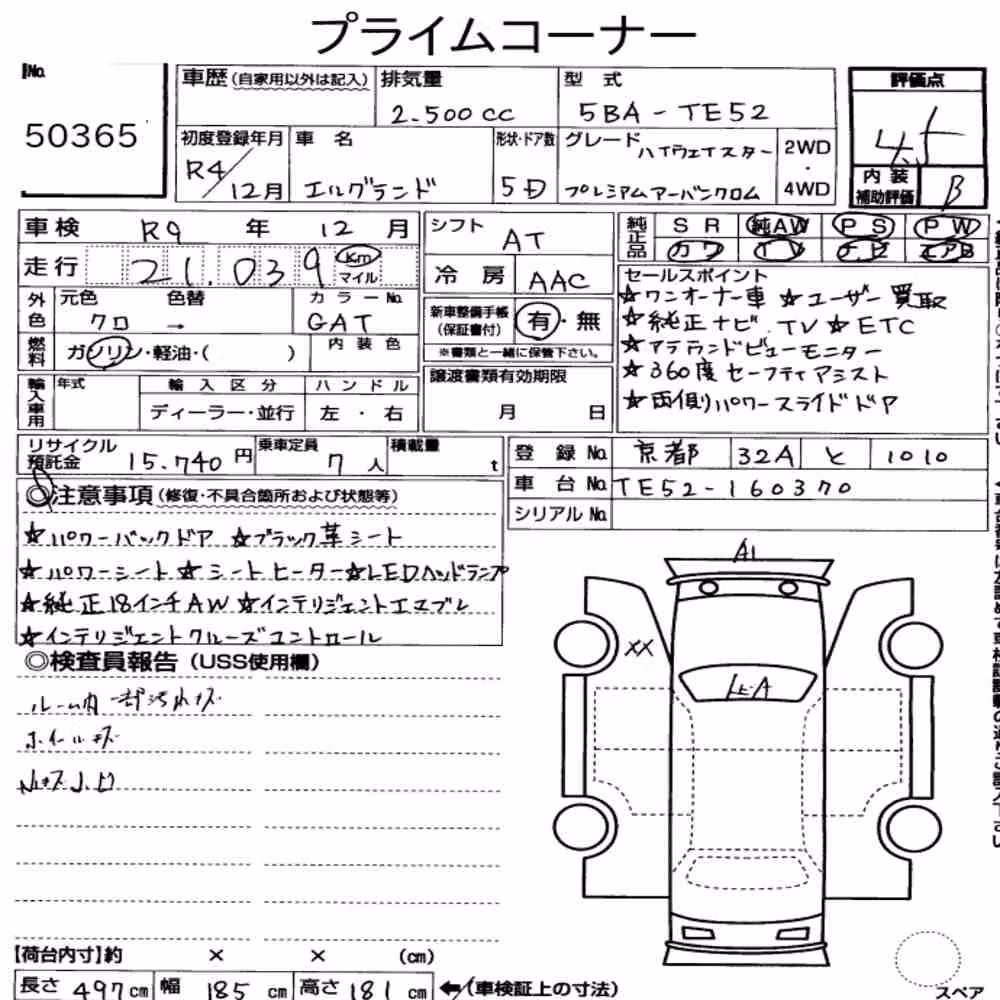 プライムコーナー
No.
50365
車歴(自家用以外は記入)
排気量
2.500cc
型式
5BA-TE52
評価点
4.5
初度登録年月
R4/12月
車名
エルグランド
形状・ドア数
5D
グレード
ハイウェイスター
プレミアムアーバンクロム
2WD
・
4WD
内装
補助評価
B
車検 R9年12月
走行 21.039 Km
マイル
外色
元色
クロ →
色替
カラーNo.
GAT
燃料
ガソリン・軽油・( )
内装色
輸入車用
年式
輸入区分
ディーラー・並行
ハンドル
左・右
シフト
AT
冷房
AAC
新車整備手帳
(保証書付)
有・無
※書類と一緒に保管下さい。
譲渡書類有効期限
月 日
純正品
SR 純AW PS PW
カワ TV ナビ エアB
セールスポイント
☆ワンオーナー車 ☆ユーザー買取
☆純正ナビ.TV☆ETC
☆アラウンドビューモニター
☆360度セーフティアシスト
☆両側パワースライドドア
リサイクル
預託金
15.740円
乗車定員
7人
積載量
t
登録No. 京都 32A と 1010
車台No. TE52-160370
シリアルNo.
◎注意事項(修復・不具合箇所および状態等)
☆パワーバックドア ☆ブラック革シート
☆パワーシート☆シートヒーター☆LEDヘッドランプ
☆純正18インチAW☆インテリジェントエマブレ
☆インテリジェントクルーズコントロール
◎検査員報告(USS使用欄)
ルーム内
ホイールキズ
A1
XX
【荷台内寸】約 × × (cm)
長さ 497cm 幅 185cm 高さ 181cm ←(車検証上の寸法)
スペア